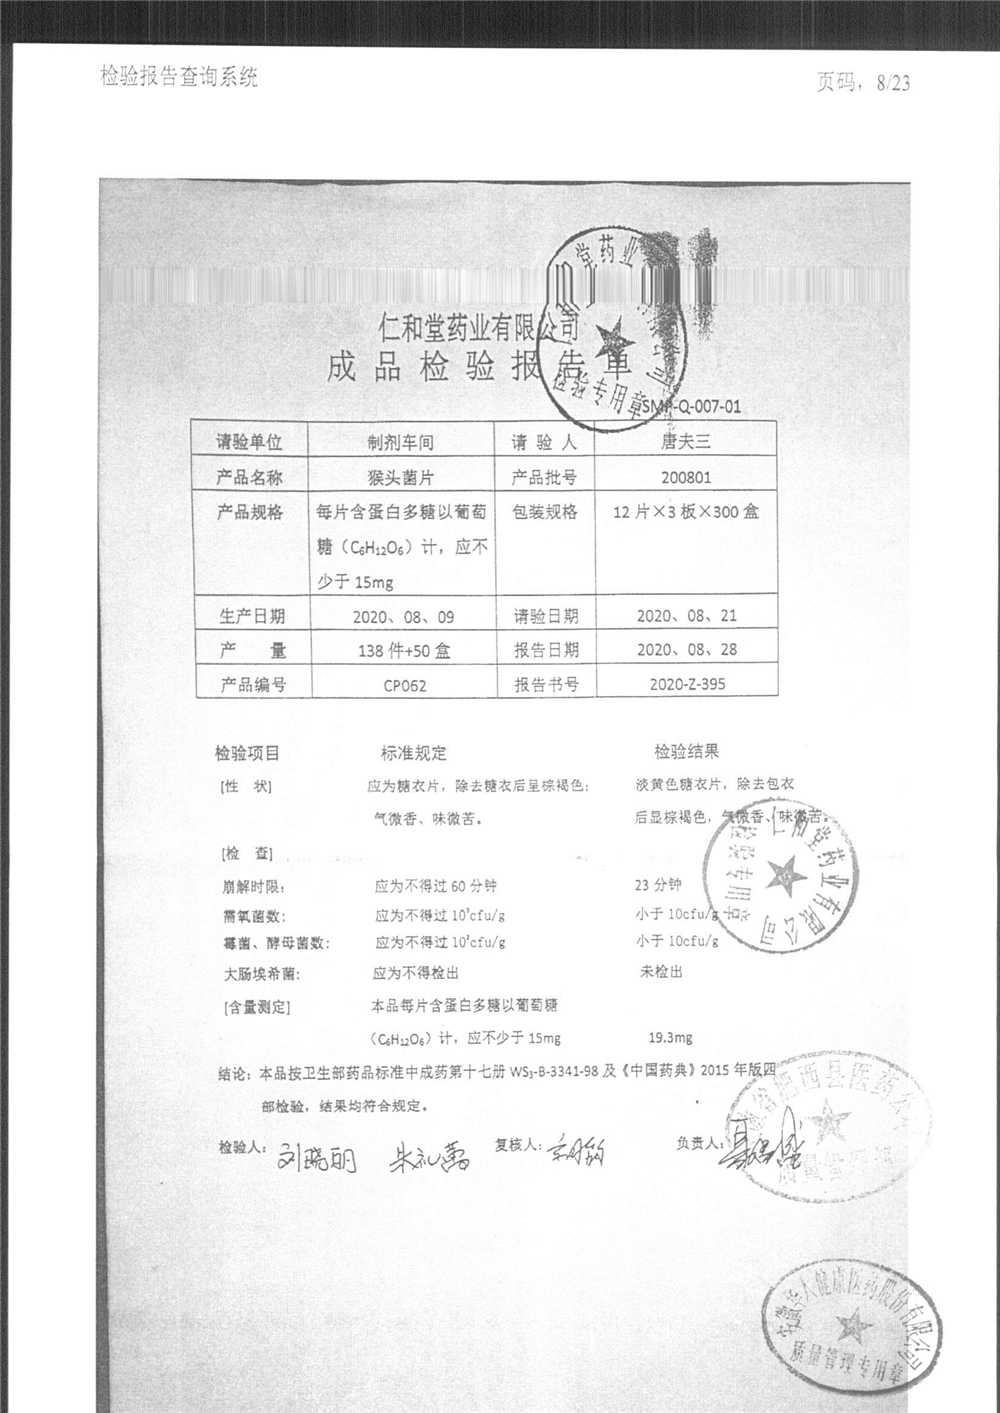 检验报告查询系统
页码，8/23
仁和堂药业有限公司
成品检验报告单
SMP-Q-007-01
请验单位 制剂车间 请验人 唐夫三
产品名称 猴头菌片 产品批号 200801
产品规格 每片含蛋白多糖以葡萄 包装规格 12片×3板×300盒
糖（C₆H₁₂O₆）计，应不
少于15mg
生产日期 2020、08、09 请验日期 2020、08、21
产量 138件+50盒 报告日期 2020、08、28
产品编号 CP062 报告书号 2020-Z-395
检验项目 标准规定 检验结果
[性 状] 应为糖衣片，除去糖衣后呈棕褐色； 淡黄色糖衣片，除去包衣
气微香、味微苦。 后显棕褐色，气微香、味微苦。
[检 查]
崩解时限： 应为不得过60分钟 23分钟
需氧菌数： 应为不得过10³cfu/g 小于10cfu/g
霉菌、酵母菌数： 应为不得过10²cfu/g 小于10cfu/g
大肠埃希菌: 应为不得检出 未检出
[含量测定] 本品每片含蛋白多糖以葡萄糖
（C₆H₁₂O₆）计，应不少于15mg 19.3mg
结论：本品按卫生部药品标准中成药第十七册WS₃-B-3341-98及《中国药典》2015年版四
部检验，结果均符合规定。
检验人：刘晓丽 朱礼 复核人： 负责人：
仁和堂药业有限公司
检验专用章
质量管理专用章